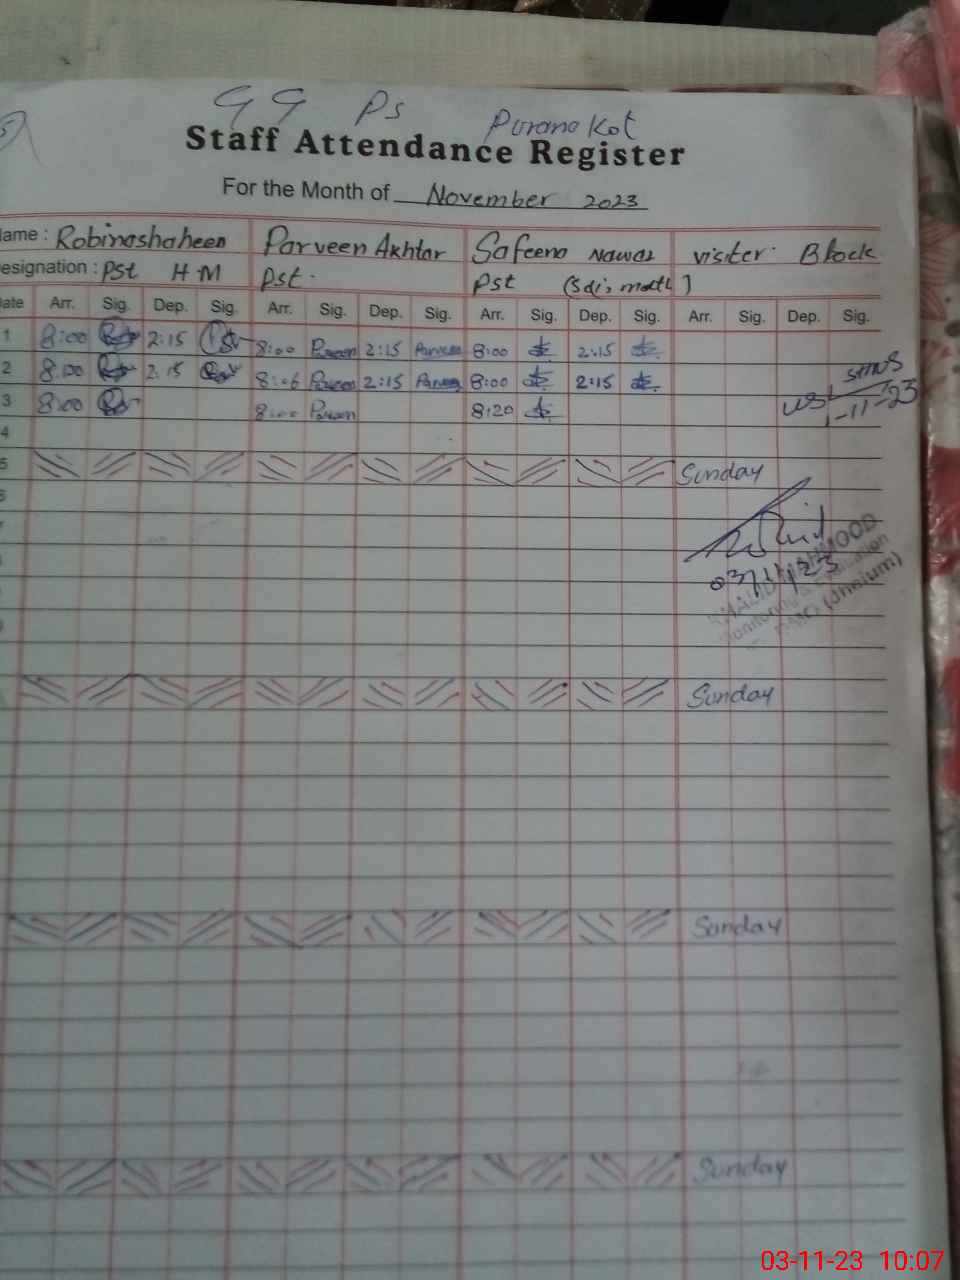 5
GG Ps Purana Kot
Staff Attendance Register
For the Month of November 2023
Name : Robinashaheen Parveen Akhtar Safeena Nawaz visiter Block
Designation : Pst H-M Pst. Pst
Date Arr. Sig. Dep. Sig. Arr. Sig. Dep. Sig. Arr. Sig. Dep. Sig. Arr. Sig. Dep. Sig.
1 8:00 2:15 8:00 Parveen 2:15 Parveen 8:00 2:15
2 8:00 2:15 8:06 Parveen 2:15 Parveen 8:00 2:15
3 8:00 8:00 Parveen 8:20
1-11-23
4
5 Sunday
6
03/11/23
Sunday
Sunday
Sunday
03-11-23 10:07